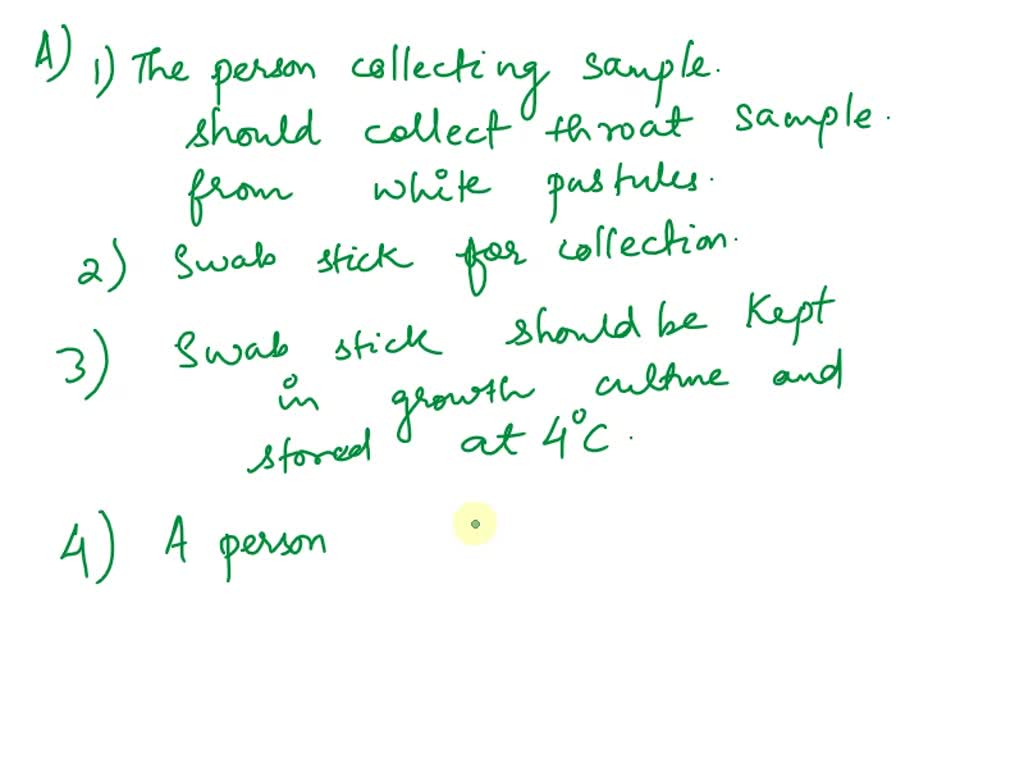 A) 1) The person collecting sample.
should collect throat sample.
from white pastules.
2) Swab stick for collection.
3) Swab stick should be kept
in growth culture and
stored at 4°C.
4) A person